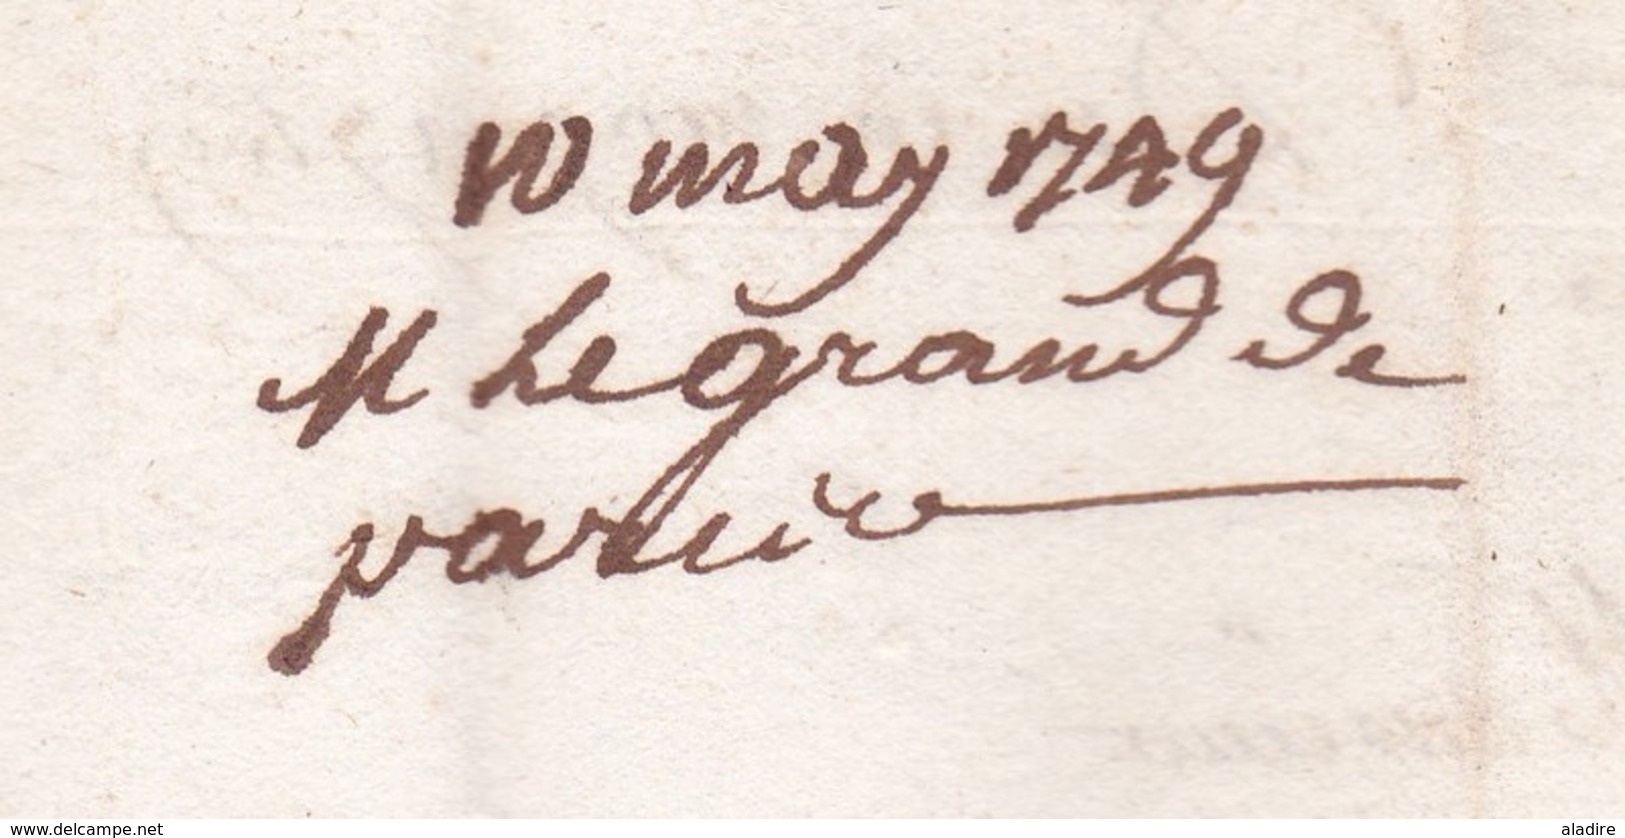 10 may 1749
M Legrand de
www.delcampe.net
aladire